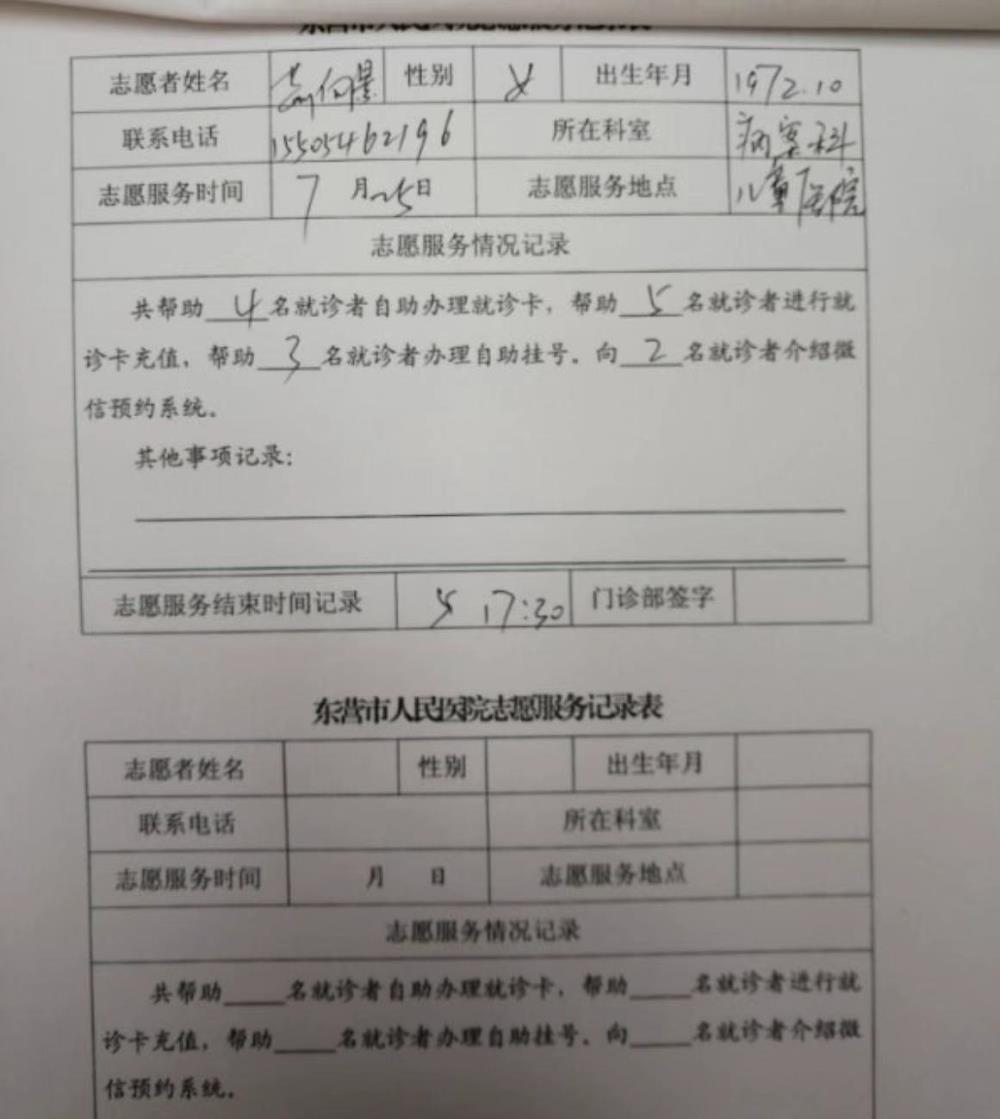 东营市人民医院志愿服务记录表
志愿者姓名 性别 女 出生年月 1972.10
联系电话 15505462196 所在科室 病案科
志愿服务时间 7月25日 志愿服务地点 儿童医院
志愿服务情况记录
共帮助 4 名就诊者自助办理就诊卡，帮助 5 名就诊者进行就
诊卡充值，帮助 3 名就诊者办理自助挂号。向 2 名就诊者介绍微
信预约系统。
其他事项记录：
志愿服务结束时间记录 17:30 门诊部签字
东营市人民医院志愿服务记录表
志愿者姓名 性别 出生年月
联系电话 所在科室
志愿服务时间 月 日 志愿服务地点
志愿服务情况记录
共帮助____名就诊者自助办理就诊卡，帮助____名就诊者进行就
诊卡充值，帮助____名就诊者办理自助挂号。向____名就诊者介绍微
信预约系统。